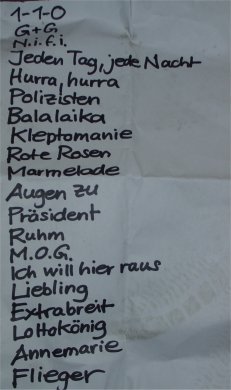 1-1-0
G+G
N.i.f.i.
Jeden Tag, jede Nacht
Hurra, hurra
Polizisten
Balalaika
Kleptomanie
Rote Rosen
Marmelade
Augen zu
Präsident
Ruhm
M.O.G.
Ich will hier raus
Liebling
Extrabreit
Lottokönig
Annemarie
Flieger